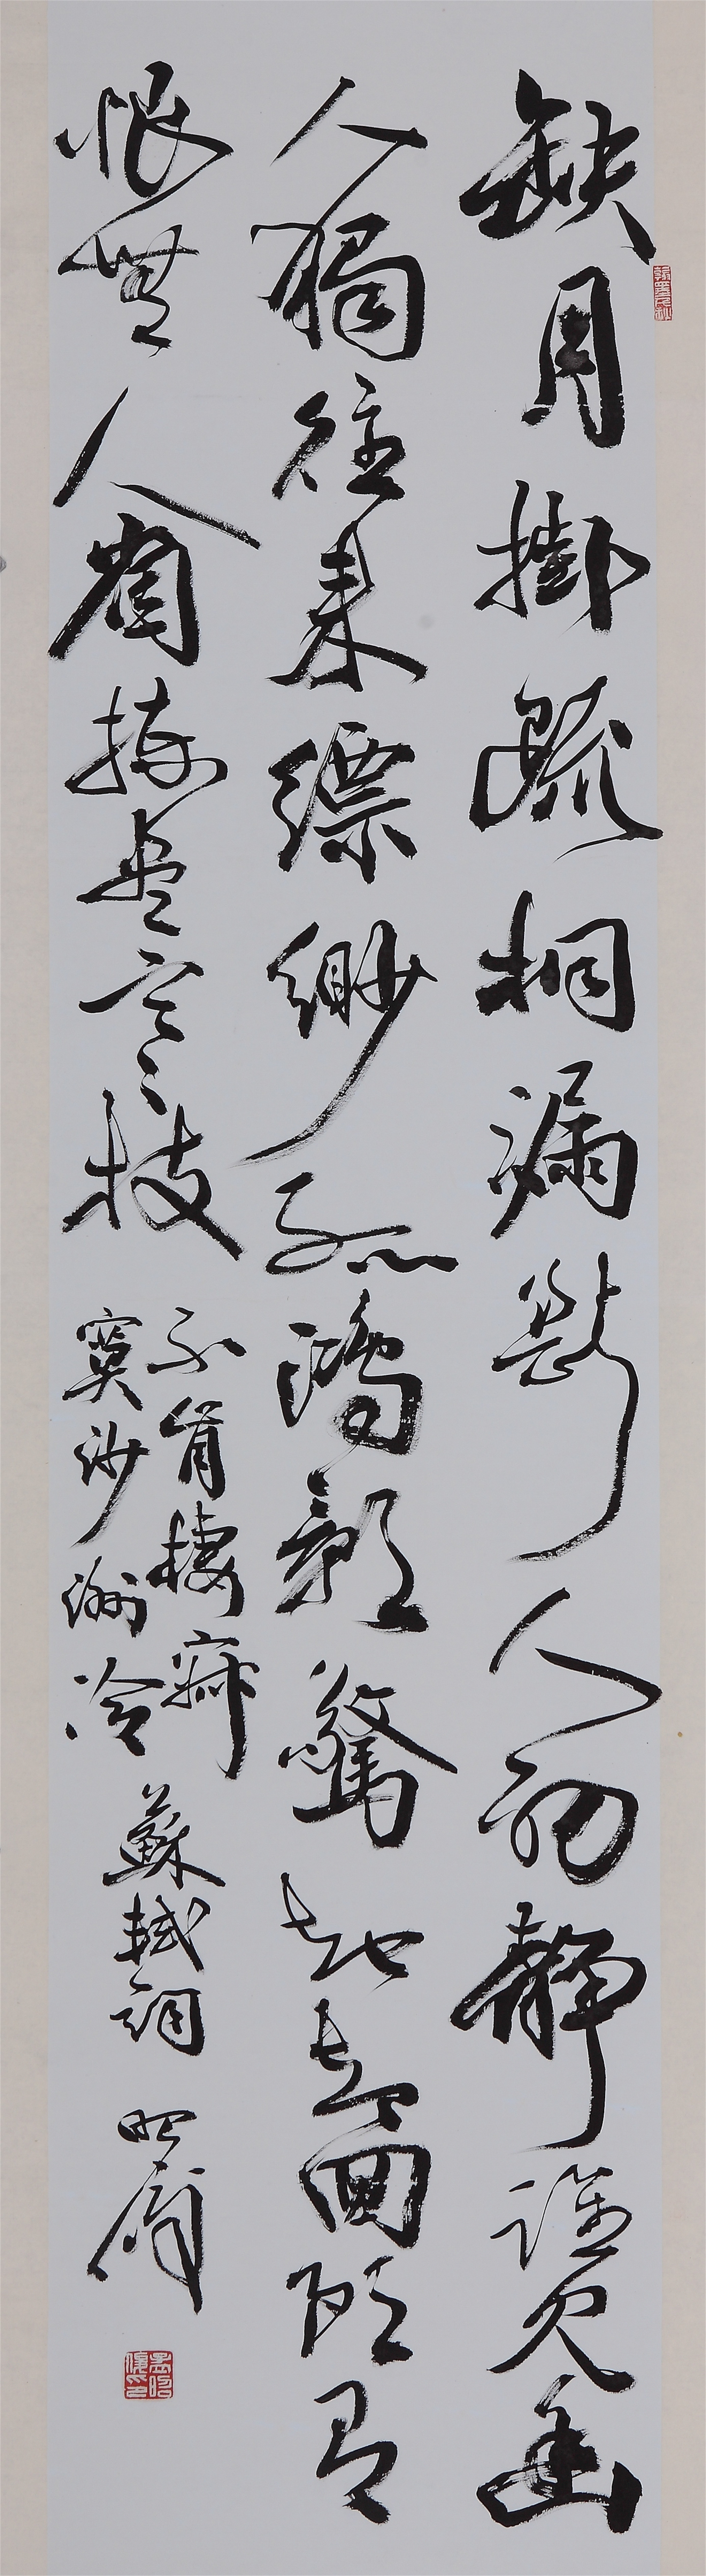 缺月掛疏桐漏斷人初靜誰見幽
人獨往来縹緲孤鴻影驚起却回頭有
恨無人省揀盡寒枝
不肯棲寂
寞沙洲冷
蘇軾詞